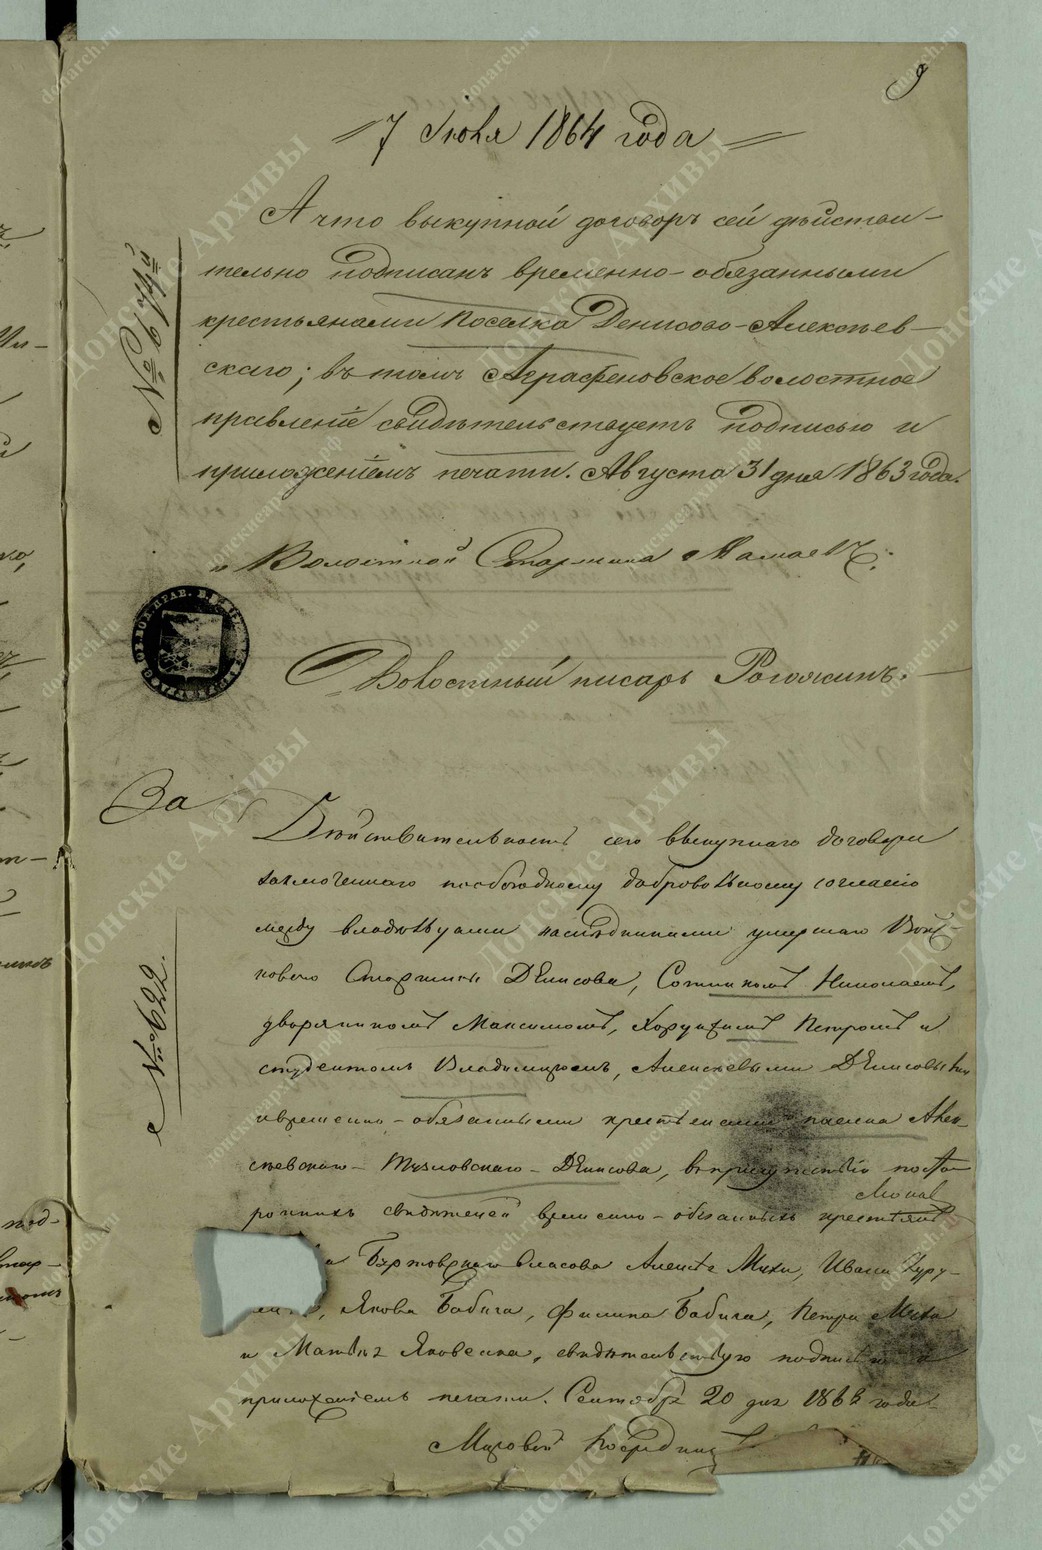 9
7 Июня 1864 года
А что выкупной договоръ сей дѣйстви-
тельно подписанъ временно-обязанными
крестьянами Поселка Денисово-Алексѣев-
скаго; въ томъ Аграфеновское волостное
правленіе свидѣтельствуетъ подписью и
приложеніемъ печати. Августа 31 дня 1863 года.
№
Волостной Старшина Мамаевъ
Волостный писарь Рогожинъ.
За
Дѣйствительность сего выкупнаго договора
заключеннаго посвободному добровольному согласію
между владѣльцами наслѣдниками умершаго Вой-
сковаго Старшины Денисова, Сотникомъ Николаемъ,
дворяниномъ Максимомъ, Хорунжимъ Петромъ и
студентомъ Владимиромъ, Алексѣевыми Денисовыми
ивременно-обязанными крестьянами поселка Алек-
сѣевскаго-Тузловскаго-Денисова, вприсутствіи посто-
роннихъ свидѣтелей временно-обязанныхъ крестьянъ
Власова Алексѣя Мухи, Ивана
Якова Бабича, Филипа Бабича, Петра Мухи
и Матвѣя Яковенка, свидѣтельствую подписью и
приложеніемъ печати. Сентября 20 дня 186 года
№ 622.
Мировой Посредникъ